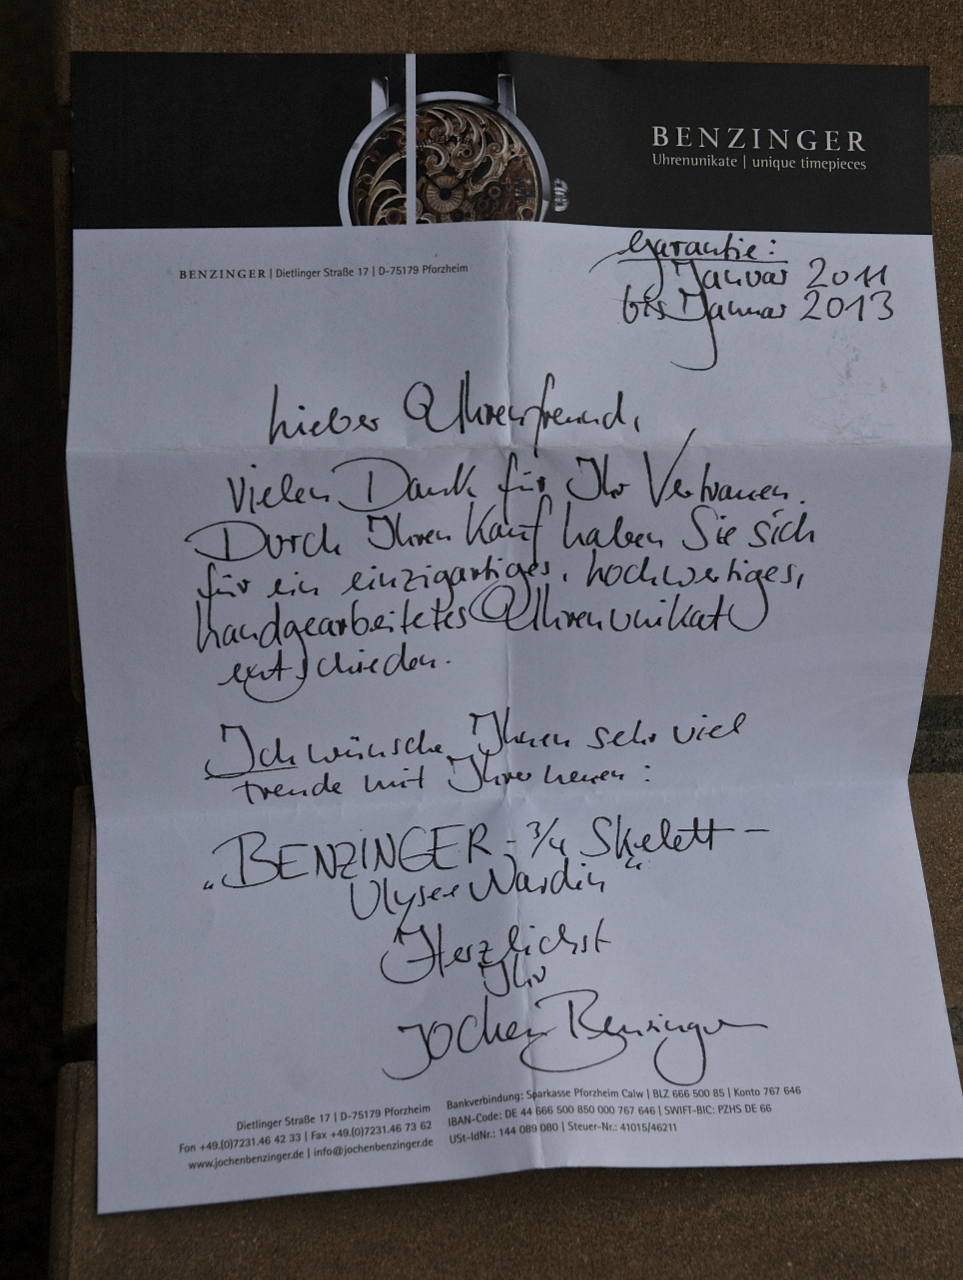 BENZINGER
Uhrenunikate | unique timepieces
BENZINGER | Dietlinger Straße 17 | D-75179 Pforzheim
Garantie:
Januar 2011
bis Januar 2013
Lieber Uhrenfreund,
vielen Dank für Ihr Vertrauen.
Durch Ihren Kauf haben Sie sich
für ein einzigartiges, hochwertiges,
handgearbeitetes Uhrenunikat
entschieden.
Ich wünsche Ihnen sehr viel
Freude mit Ihrer neuen:
„BENZINGER - 3/4 Skelett -
Ulysse Nardin"
Herzlichst
Ihr
Jochen Benzinger
Dietlinger Straße 17 | D-75179 Pforzheim
Fon +49.(0)7231.46 42 33 | Fax +49.(0)7231.46 73 62
www.jochenbenzinger.de | info@jochenbenzinger.de
Bankverbindung: Sparkasse Pforzheim Calw | BLZ 666 500 85 | Konto 767 646
IBAN-Code: DE 44 666 500 850 000 767 646 | SWIFT-BIC: PZHS DE 66
USt-IdNr.: 144 089 080 | Steuer-Nr.: 41015/46211